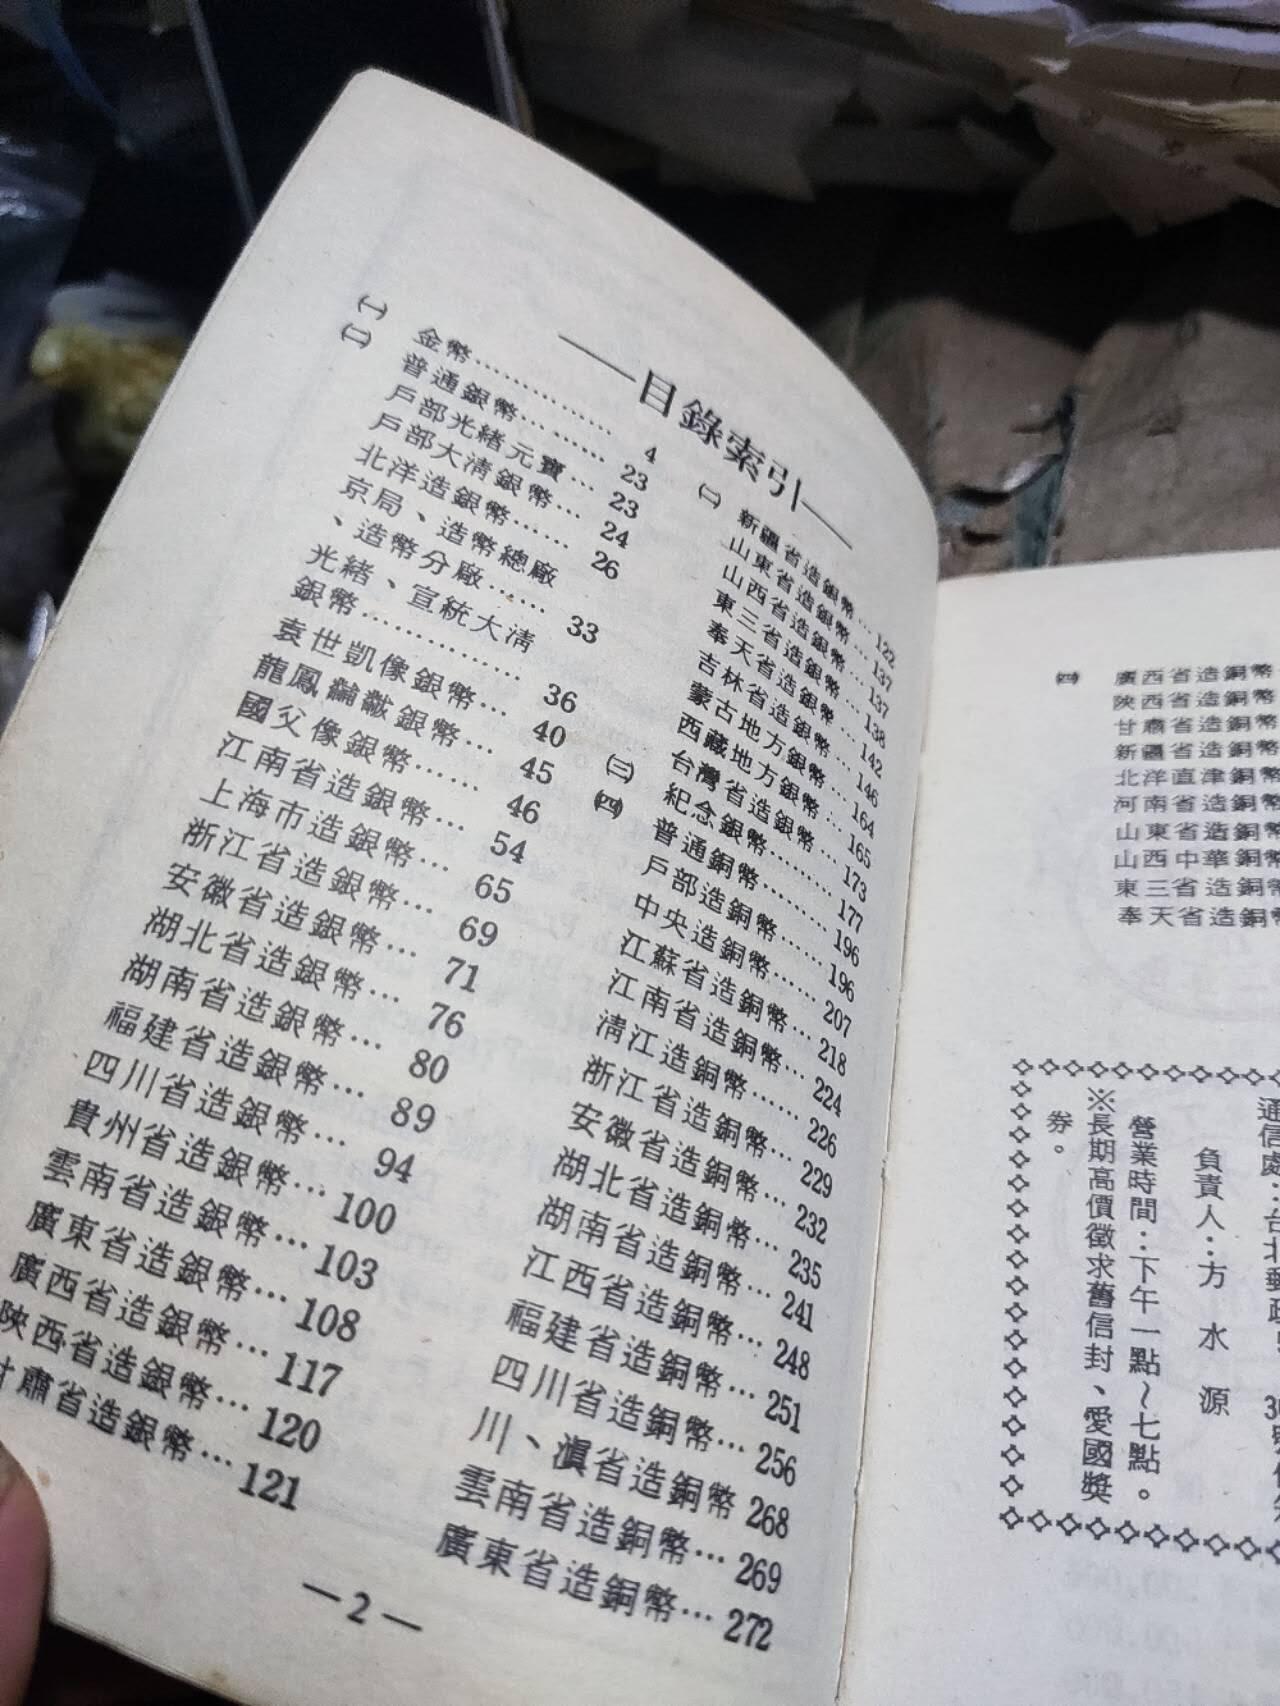 —目錄索引—
㈠ 金幣……………… 4
㈡ 普通銀幣……… 23
戶部光緒元寶… 23
戶部大清銀幣… 24
北洋造銀幣…… 26
京局、造幣總廠
、造幣分廠…… 33
光緒、宣統大清
銀幣……………… 36
袁世凱像銀幣… 40
龍鳳黼黻銀幣… 45
國父像銀幣…… 46
江南省造銀幣… 54
上海市造銀幣… 65
浙江省造銀幣… 69
安徽省造銀幣… 71
湖北省造銀幣… 76
湖南省造銀幣… 80
福建省造銀幣… 89
四川省造銀幣… 94
貴州省造銀幣… 100
雲南省造銀幣… 103
廣東省造銀幣… 108
廣西省造銀幣… 117
陝西省造銀幣… 120
甘肅省造銀幣… 121
㈡ 新疆省造銀幣… 122
山東省造銀幣… 137
山西省造銀幣… 137
東三省造銀幣… 138
奉天省造銀幣… 142
吉林省造銀幣… 146
蒙古地方銀幣… 164
西藏地方銀幣… 165
台灣省造銀幣… 173
㈢ 紀念銀幣……… 177
㈣ 普通銅幣……… 196
戶部造銅幣…… 196
中央造銅幣…… 207
江蘇省造銅幣… 218
江南省造銅幣… 224
清江造銅幣…… 226
浙江省造銅幣… 229
安徽省造銅幣… 232
湖北省造銅幣… 235
湖南省造銅幣… 241
江西省造銅幣… 248
福建省造銅幣… 251
四川省造銅幣… 256
川、滇省造銅幣 268
雲南省造銅幣… 269
廣東省造銅幣… 272
—2—
㈣ 廣西省造銅幣
陝西省造銅幣
甘肅省造銅幣
新疆省造銅幣
北洋直津銅幣
河南省造銅幣
山東省造銅幣
山西中華銅幣
東三省造銅幣
奉天省造銅幣
通信處：台北郵政
負責人：方水源
營業時間：下午一點～七點。
※長期高價徵求舊信封、愛國獎
券。